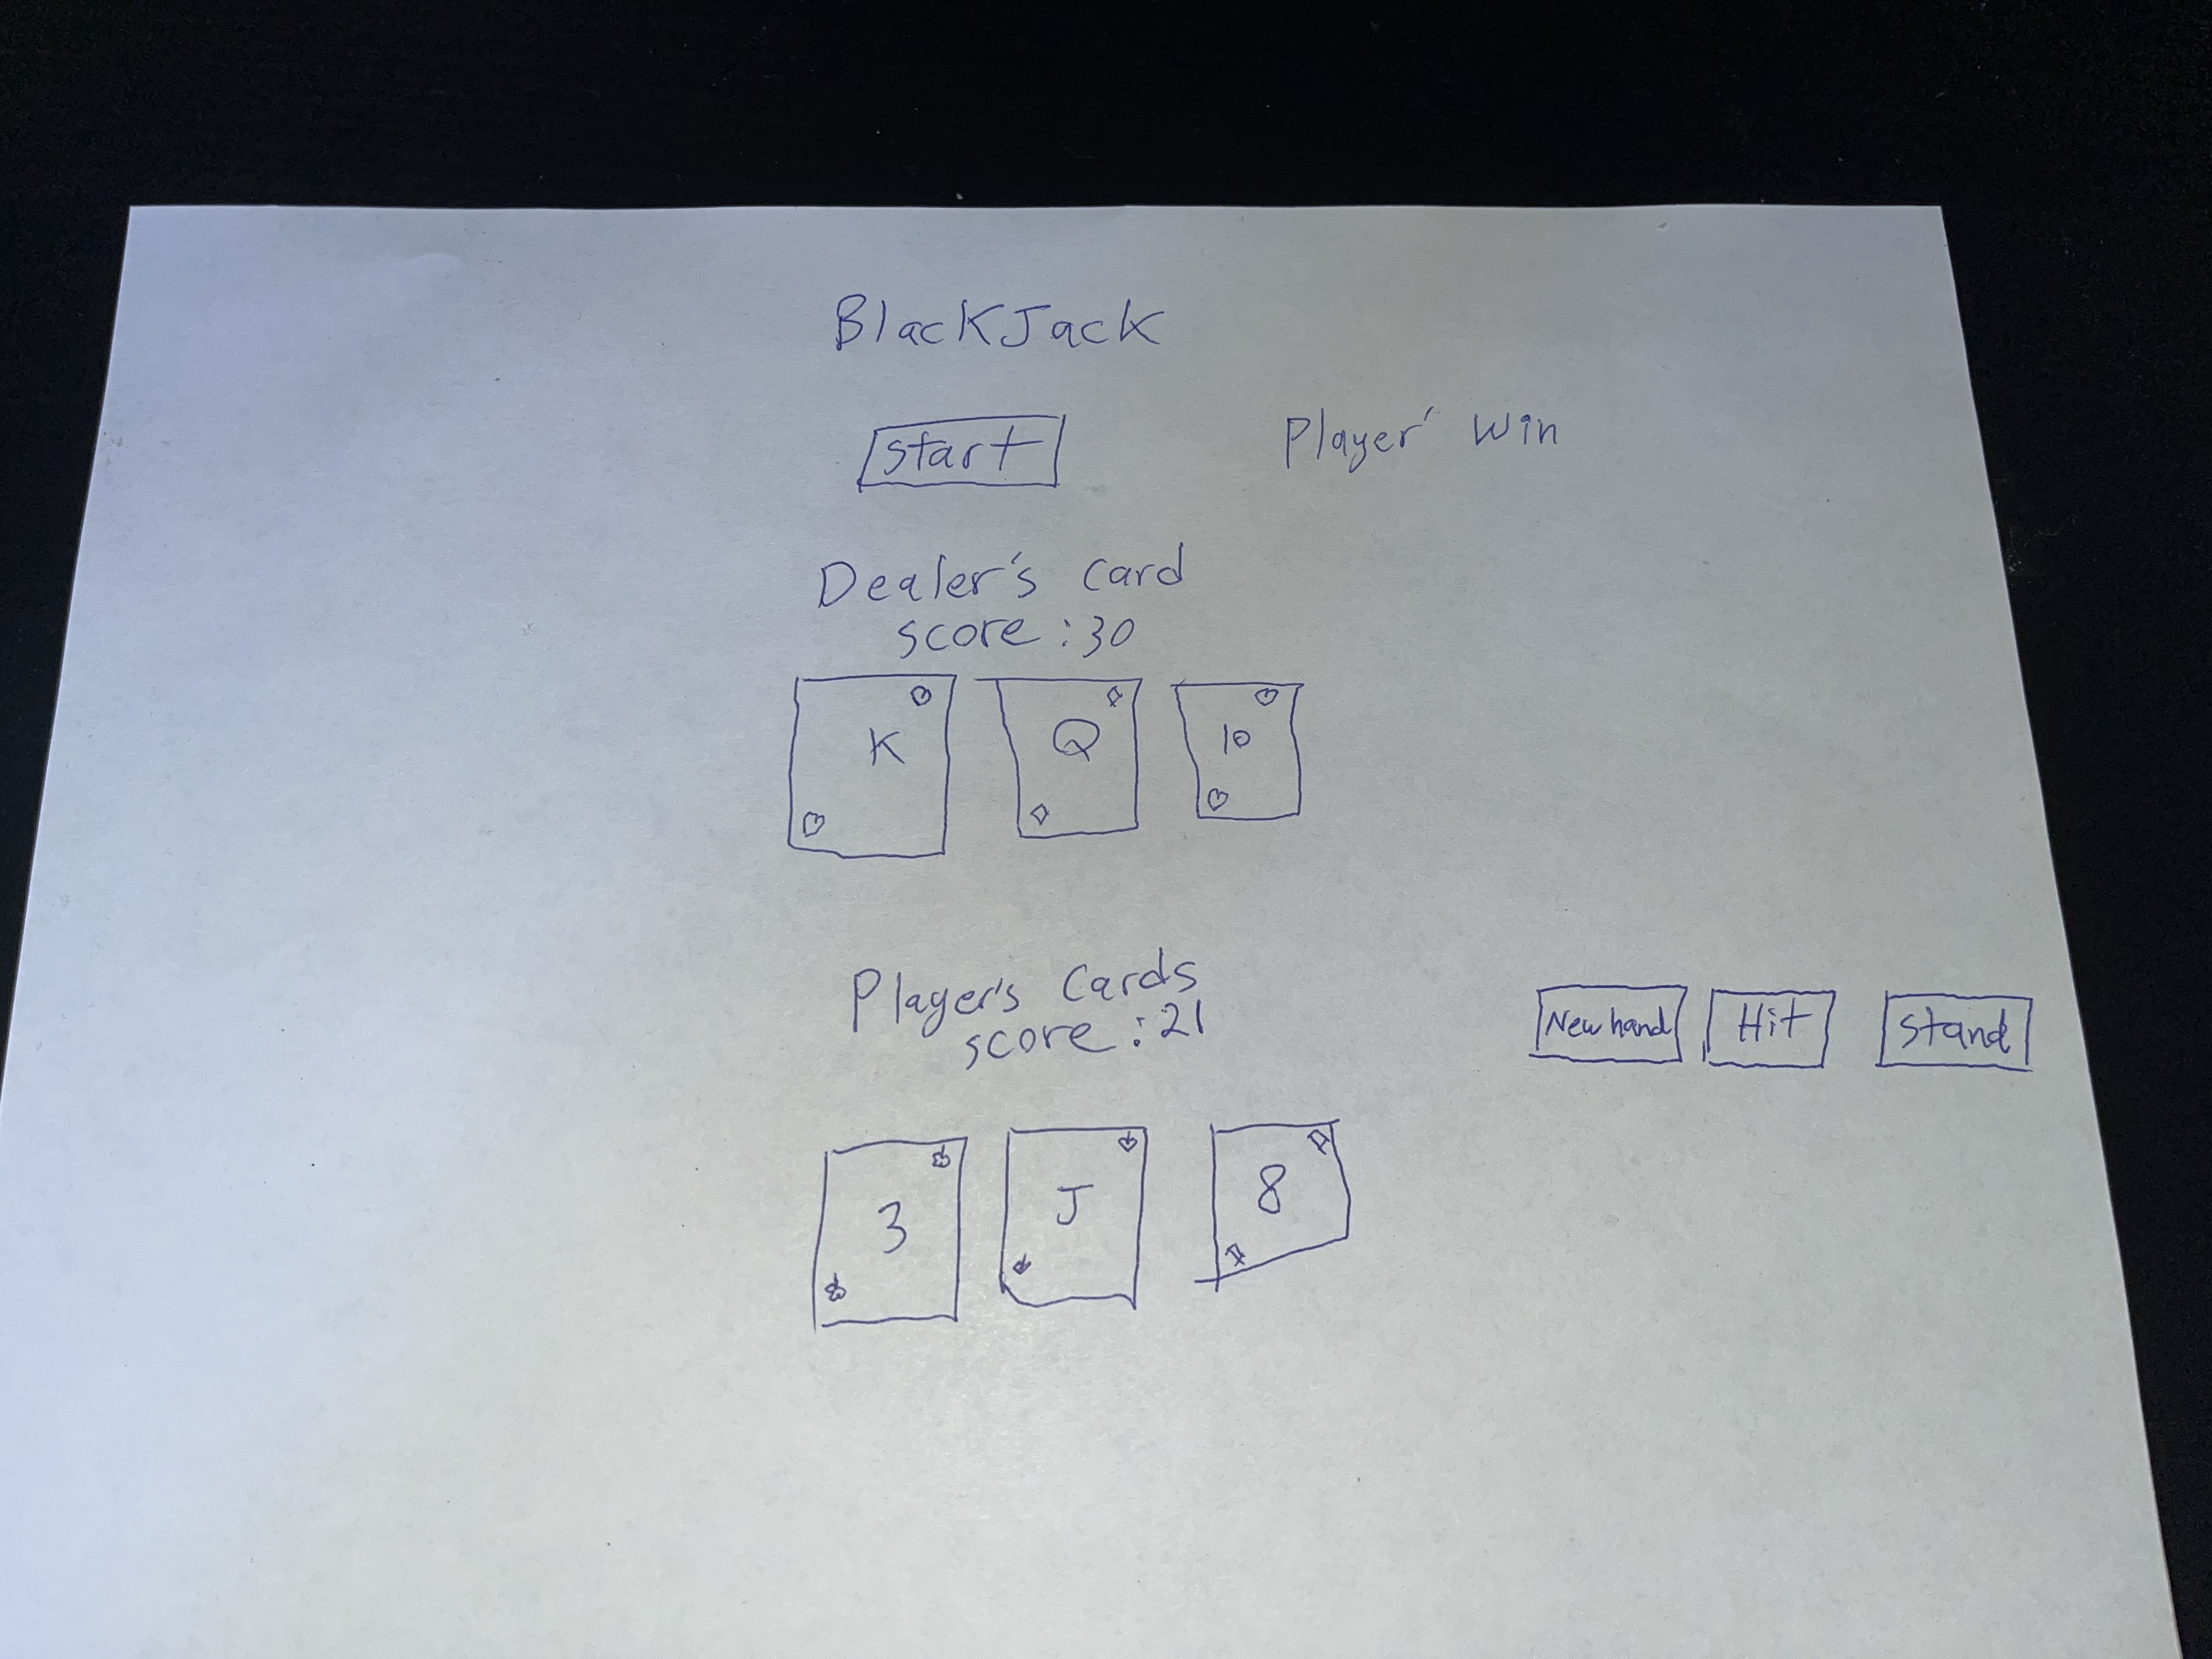 BlackJack
Start
Player' Win
Dealer's Card
score :30
K
Q
10
Player's Cards
score :21
New hand
Hit
Stand
3
J
8